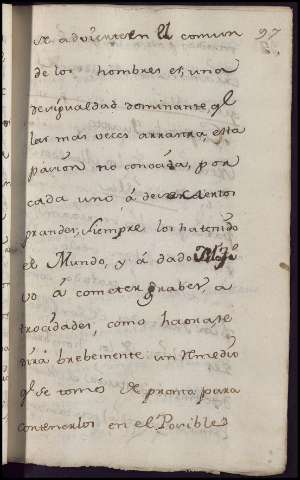 se advierte en el comun 97
de los hombres es, una
desigualdad dominante, q.l
las mas veces arrastra, esta
pasion no conocida, por
cada uno á de
grandes, siempre los ha tenido
el Mundo, y á dado
vo á cometer grabes, a
trocidades, como haora, se
dirá brebemente un Rmedio
q.l se tomó de pronta para
contenerlos en el Posible